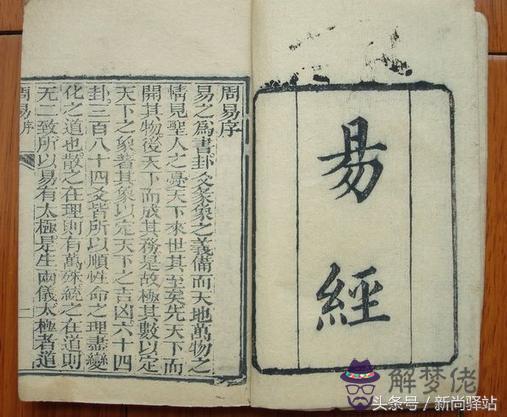 易經
周易序
易之為書卦爻彖象之義備而天地萬物之
情見聖人之憂天下來世其至矣先天下而
開其物後天下而成其務是故極其數以定
天下之象著其象以定天下之吉凶六十四
卦三百八十四爻皆所以順性命之理盡變
化之道也散之在理則有萬殊統之在道則
无二致所以易有太極是生兩儀太極者道
周易序 一
解夢佬
头条号 / 新尚驿站